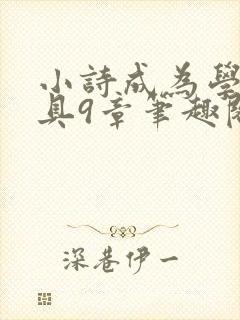 小詩成為學
具9章筆趣閱
深巷伊一